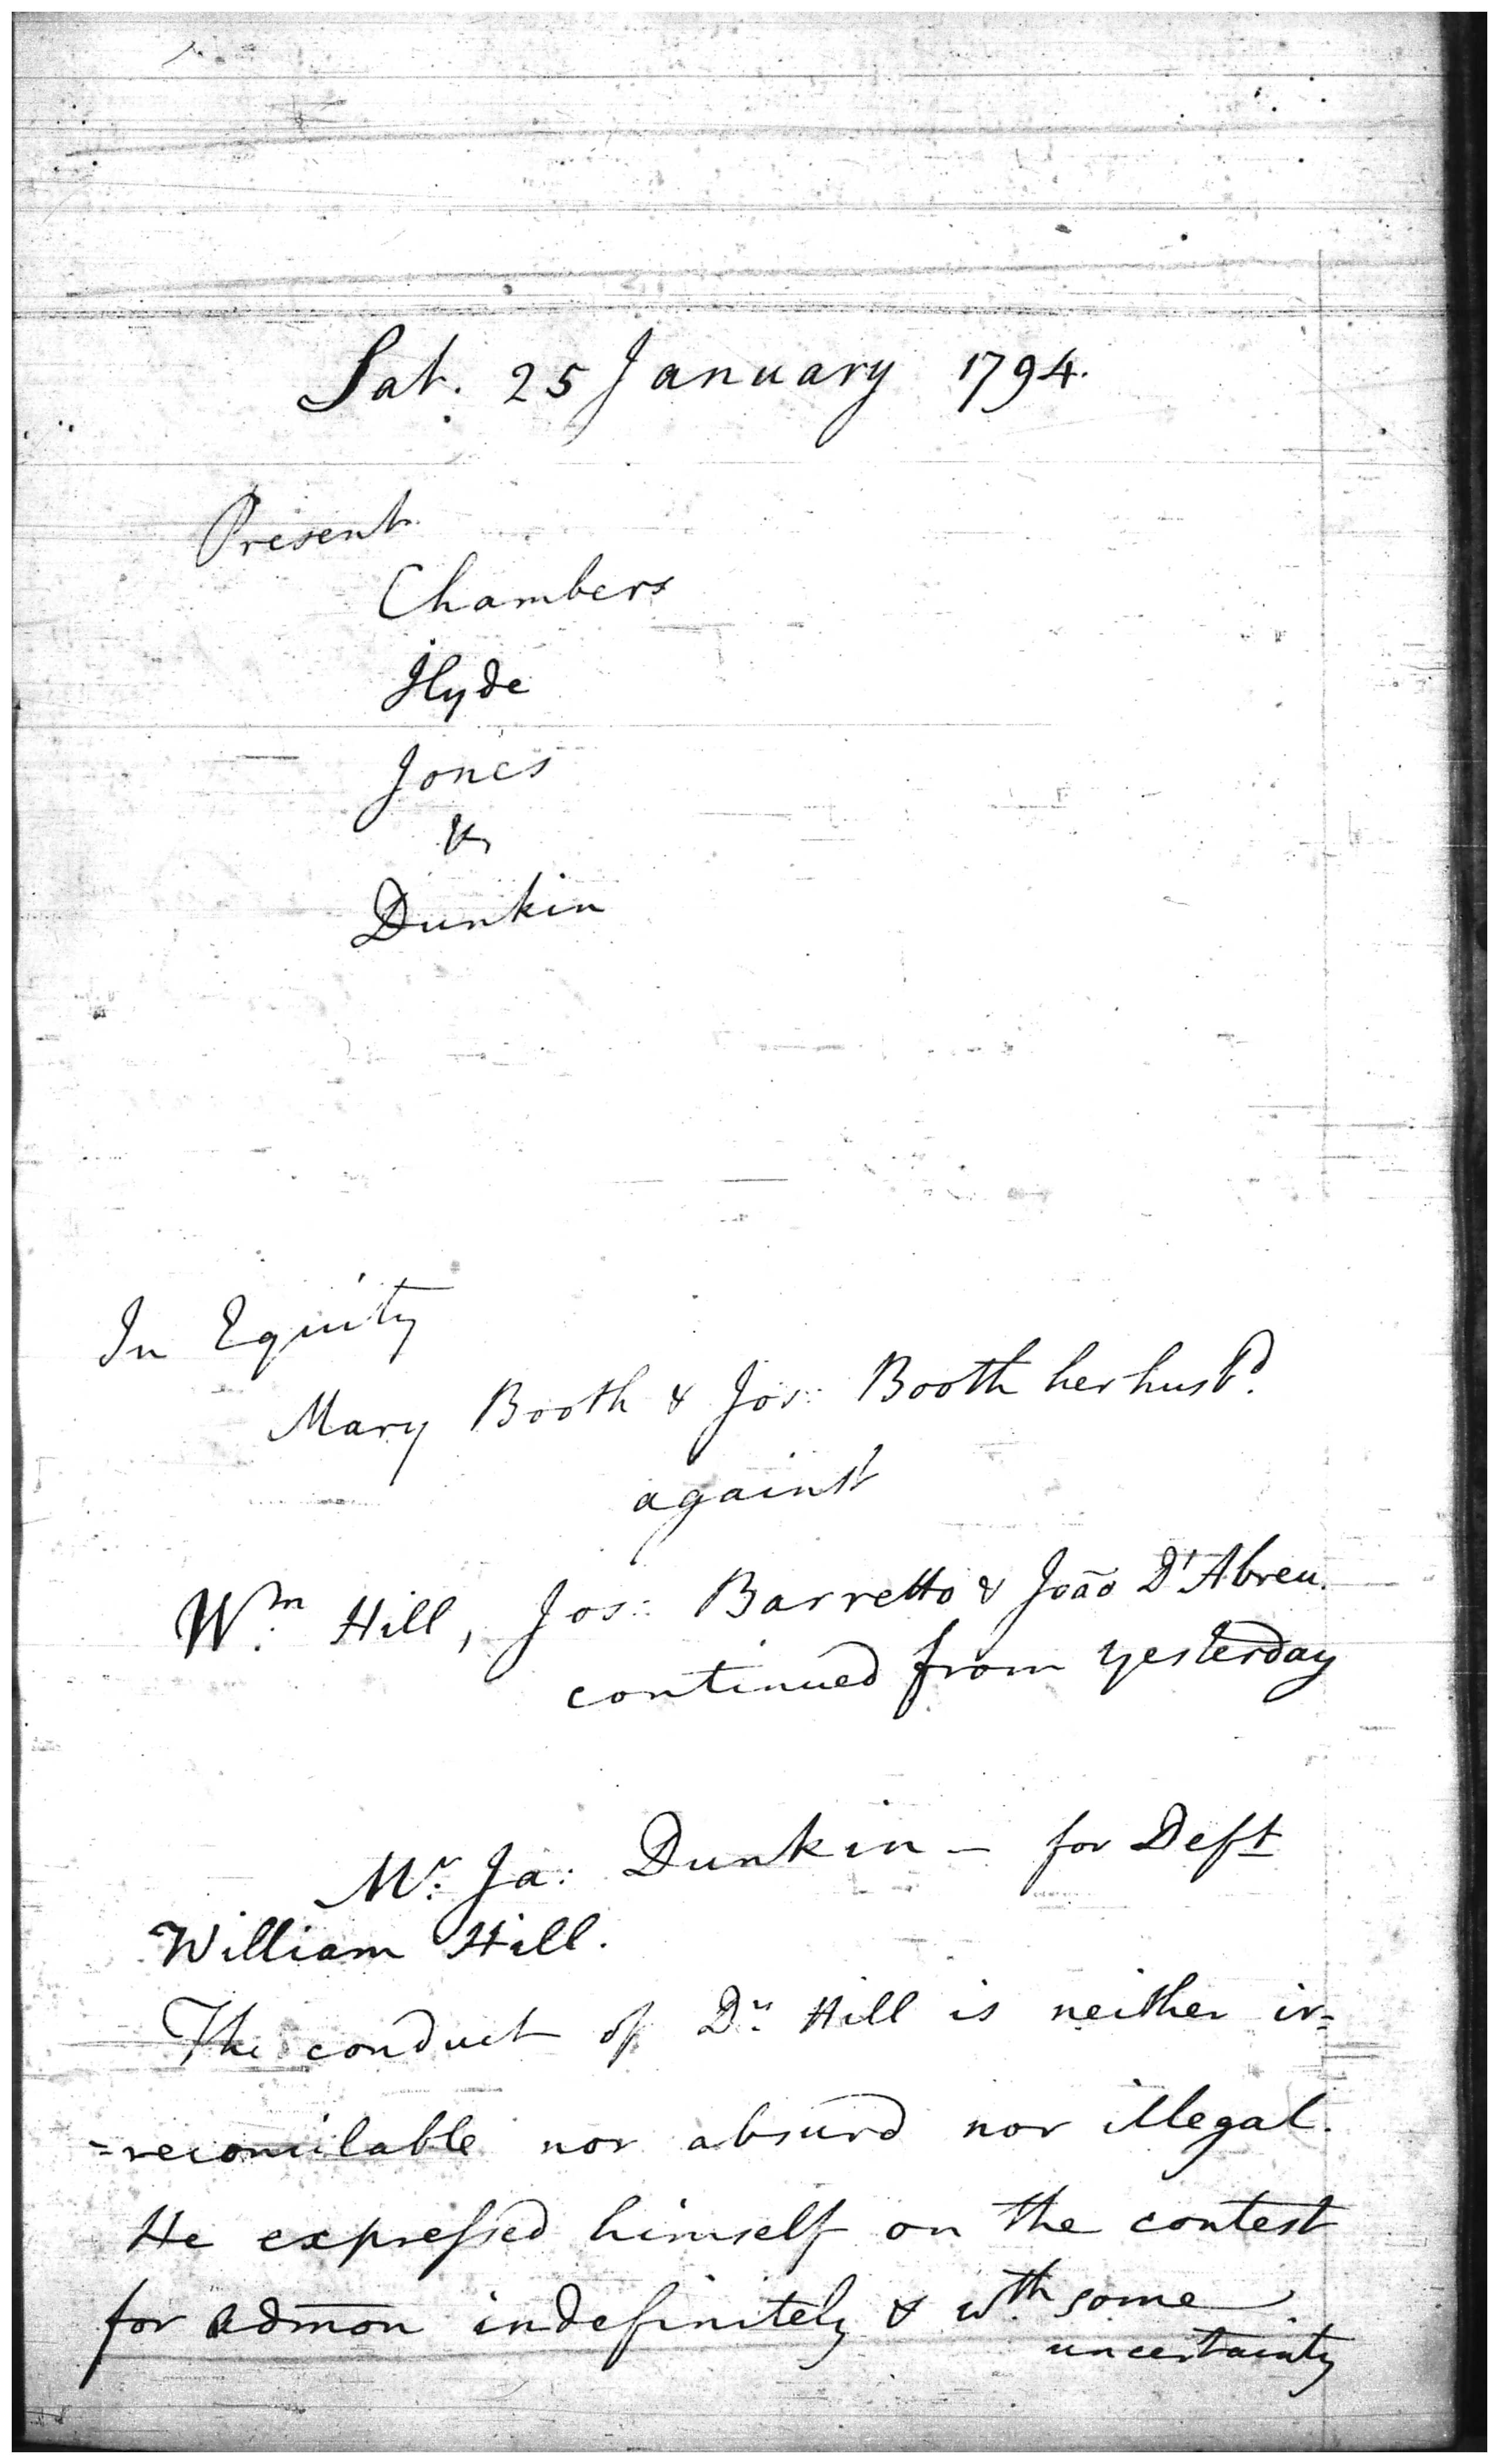 Sat. 25 January 1794.
Present
Chambers
Hyde
Jones
&
Dunkin
In Equity
Mary Booth & Jos: Booth her husbd.
against
Wm. Hill, Jos: Barretto & João D'Abreu.
continued from yesterday
Mr. Ja: Dunkin – for Deft
William Hill.
The conduct of Dr. Hill is neither ir=
=reconcilable nor absurd nor illegal.
He expressed himself on the contest
for admōn indefinitely & wth some
uncertainty